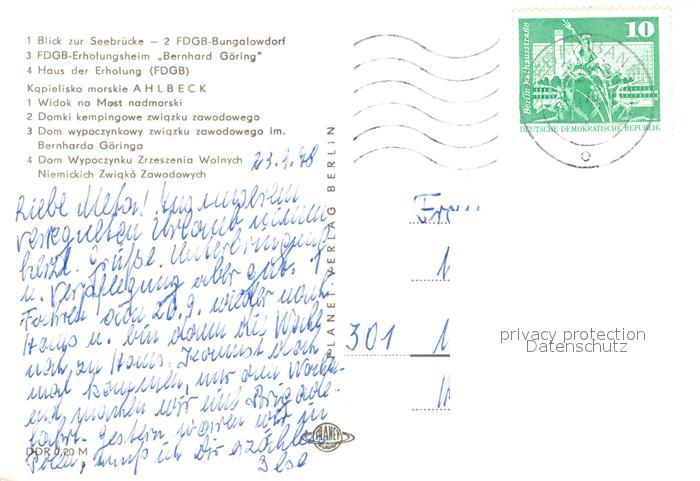 1 Blick zur Seebrücke – 2 FDGB-Bungalowdorf
3 FDGB-Erholungsheim „Bernhard Göring“
4 Haus der Erholung (FDGB)
Kąpielisko morskie AHLBECK
1 Widok na Most nadmorski
2 Domki kempingowe związku zawodowego
3 Dom wypoczynkowy związku zawodowego im.
Bernharda Göringa
4 Dom Wypoczynku Zrzeszenia Wolnych
Niemickich Zwiąkó Zawodowych
23.9.78
Liebe Meta! Aus unserem
verregneten Urlaub
herzl. Grüße. Unterbringung
u. Verpflegung aber gut.
Fahren am 26.9. wieder nach
Haus u. bin dann die Woche
noch zu Haus. Kommst doch
mal
machen wir eine
fahrt. Gestern waren wir in
Polen, muß ich Dir erzählen
Ilse
DDR 0,20 M
PLANET-VERLAG BERLIN
PLANET
10
Berlin Rathausstraße
DEUTSCHE DEMOKRATISCHE REPUBLIK
Frau
301
privacy protection
Datenschutz